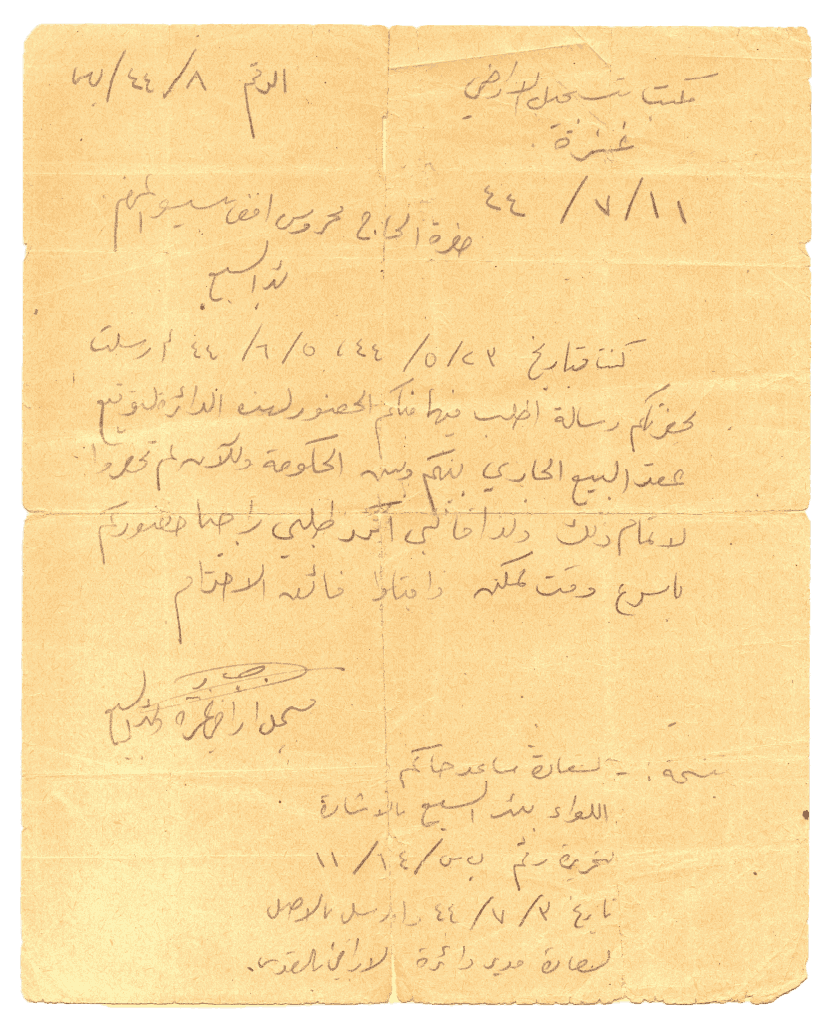 مكتب تسجيل الاراضي
الرقم ٤٤/٨/بس
غزة
٤٤ / ٧/ ١١
حضرة الحاج محروس افندي المحترم
بئر السبع
كنت بتاريخ ٢٣/ ٥/ ٤٤، ٥/ ٦/ ٤٤ أرسلت
لحضرتكم رسالة اطلب فيها منكم الحضور لهذه الدائرة لتوقيع
عقد البيع الجاري بينكم وبين الحكومة وللآن لم تحضروا
لاتمام ذلك ولذا فانني أكرر طلبي راجيا حضوركم
باسرع وقت ممكن واقبلوا فائق الاحترام
مسجل اراضي غزة وبئر السبع
نسخة :- لسعادة مساعد حاكم
اللواء بئر السبع بالاشارة
لتحريره رقم ب س/١٤/ ١١
تاريخ ٣/ ٧/ ٤٤ وارسل بالاصل
لسعادة مدير دائرة الاراضي بالقدس.